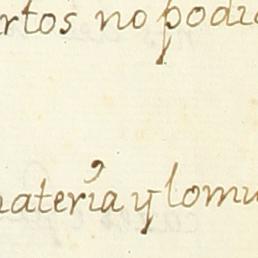 rtos no podia
materia y lomu